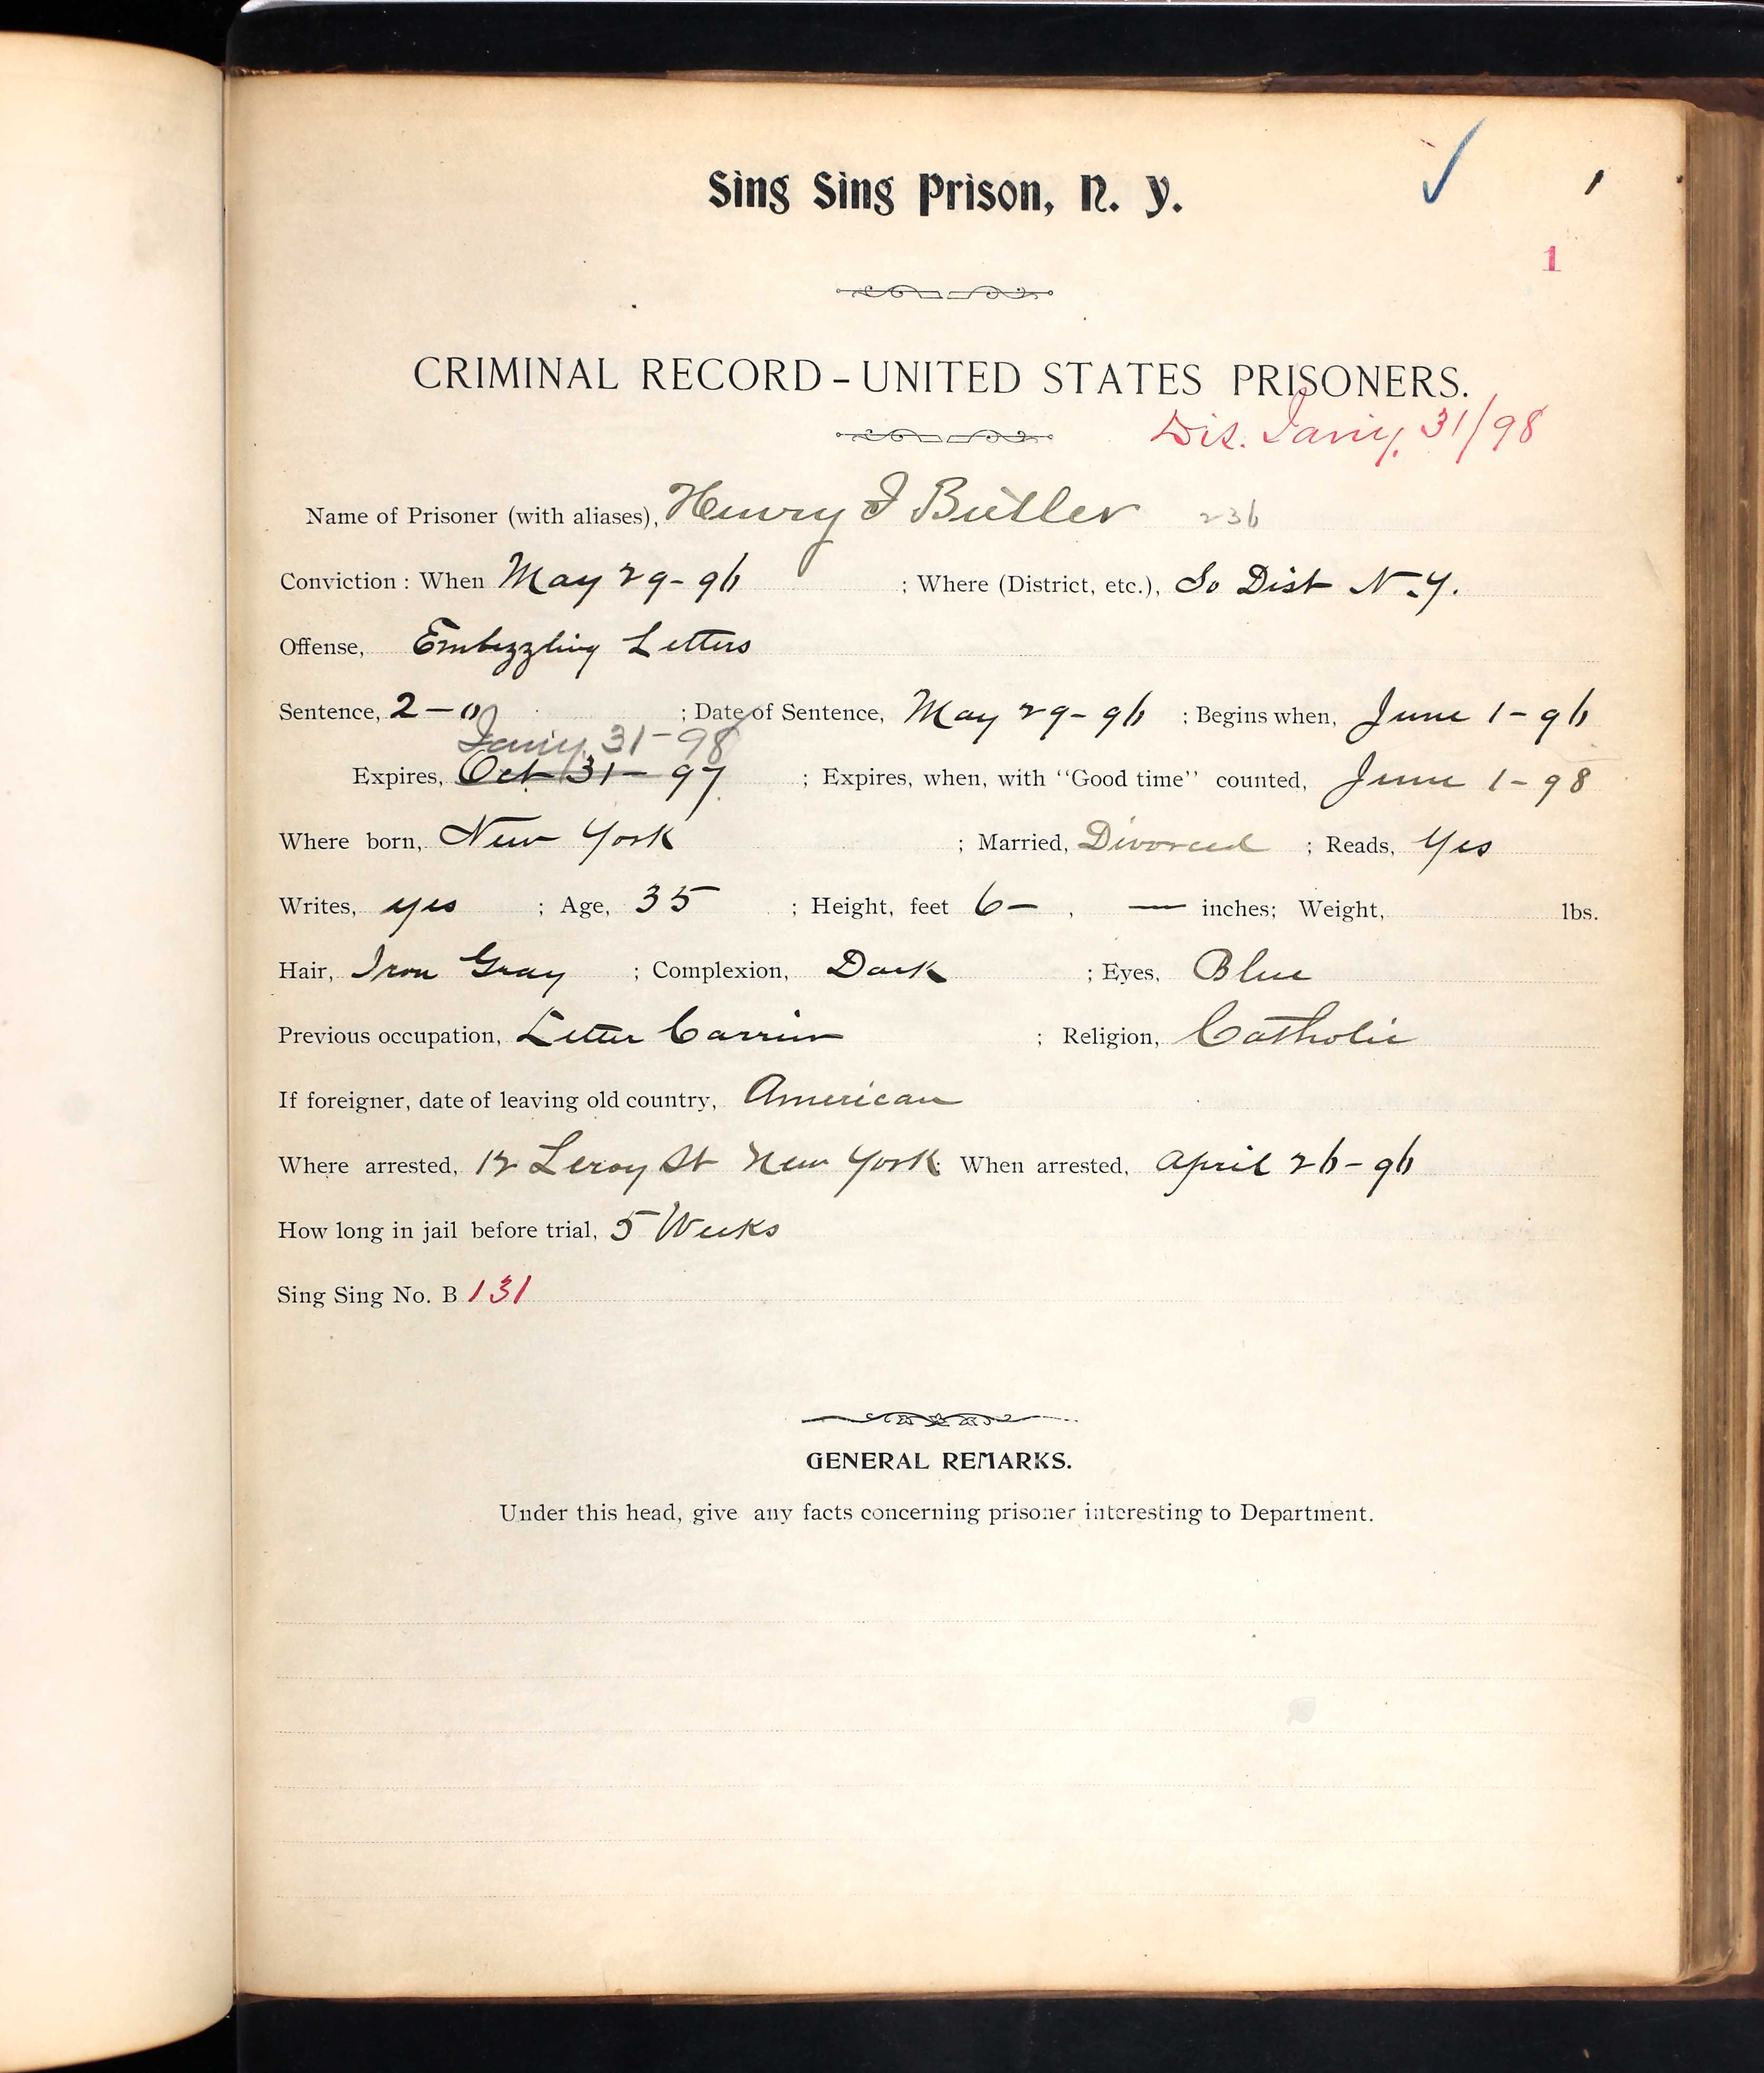 Sing Sing Prison, N. Y.
1
CRIMINAL RECORD - UNITED STATES PRISONERS.
Dis. Jan'y, 31/98
Name of Prisoner (with aliases), Henry J Butler 236
Conviction: When May 29-96 ; Where (District, etc.), So Dist N.Y.
Offense, Embezzling Letters
Sentence, 2-0 ; Date of Sentence, May 29-96 ; Begins when, June 1-96
Jan'y, 31-98
Expires, Oct 31-97 ; Expires, when, with "Good time" counted, June 1-98
Where born, New York ; Married, Divorced ; Reads, Yes
Writes, yes ; Age, 35 ; Height, feet 6- , — inches; Weight, lbs.
Hair, Iron Gray ; Complexion, Dark ; Eyes, Blue
Previous occupation, Letter Carrier ; Religion, Catholic
If foreigner, date of leaving old country, American
Where arrested, 12 Leroy St New York; When arrested, April 26-96
How long in jail before trial, 5 Weeks
Sing Sing No. B 131
GENERAL REMARKS.
Under this head, give any facts concerning prisoner interesting to Department.